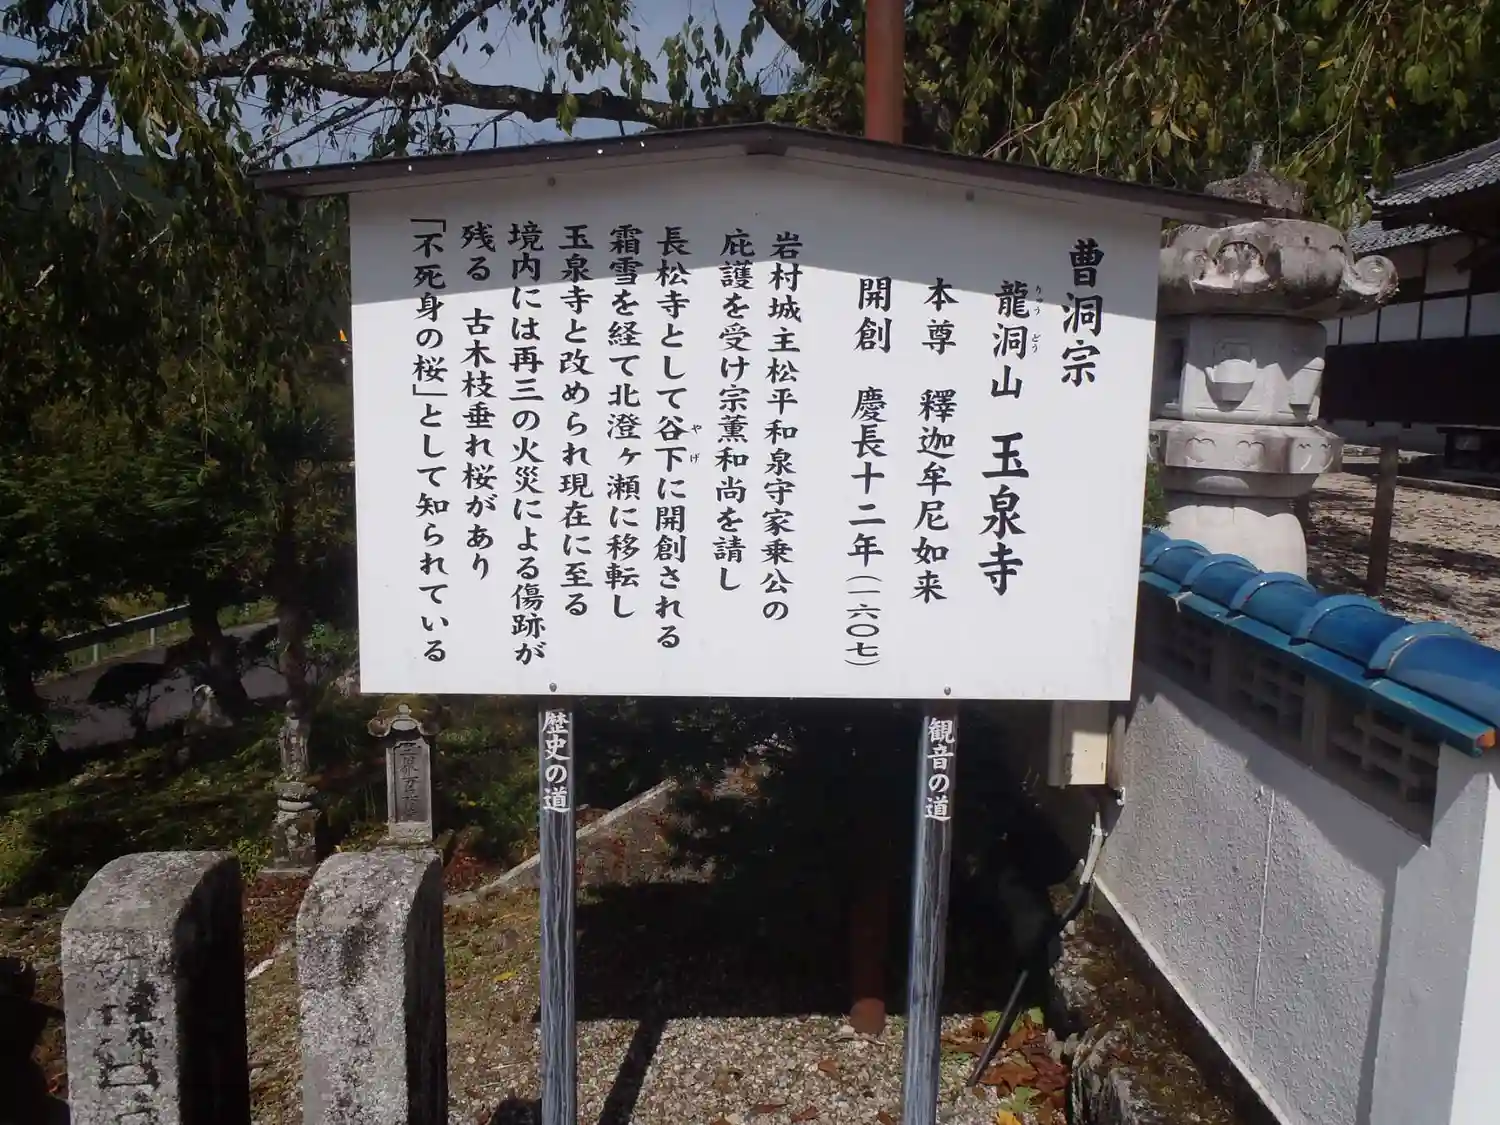 曹洞宗
龍洞山 玉泉寺
りゅう どう
本尊 釋迦牟尼如来
開創 慶長十二年(一六〇七)
岩村城主松平和泉守家乗公の
庇護を受け宗薫和尚を請し
長松寺として谷下に開創される
やげ
霜雪を経て北澄ヶ瀬に移転し
玉泉寺と改められ現在に至る
境内には再三の火災による傷跡が
残る 古木枝垂れ桜があり
「不死身の桜」として知られている
観音の道
歴史の道